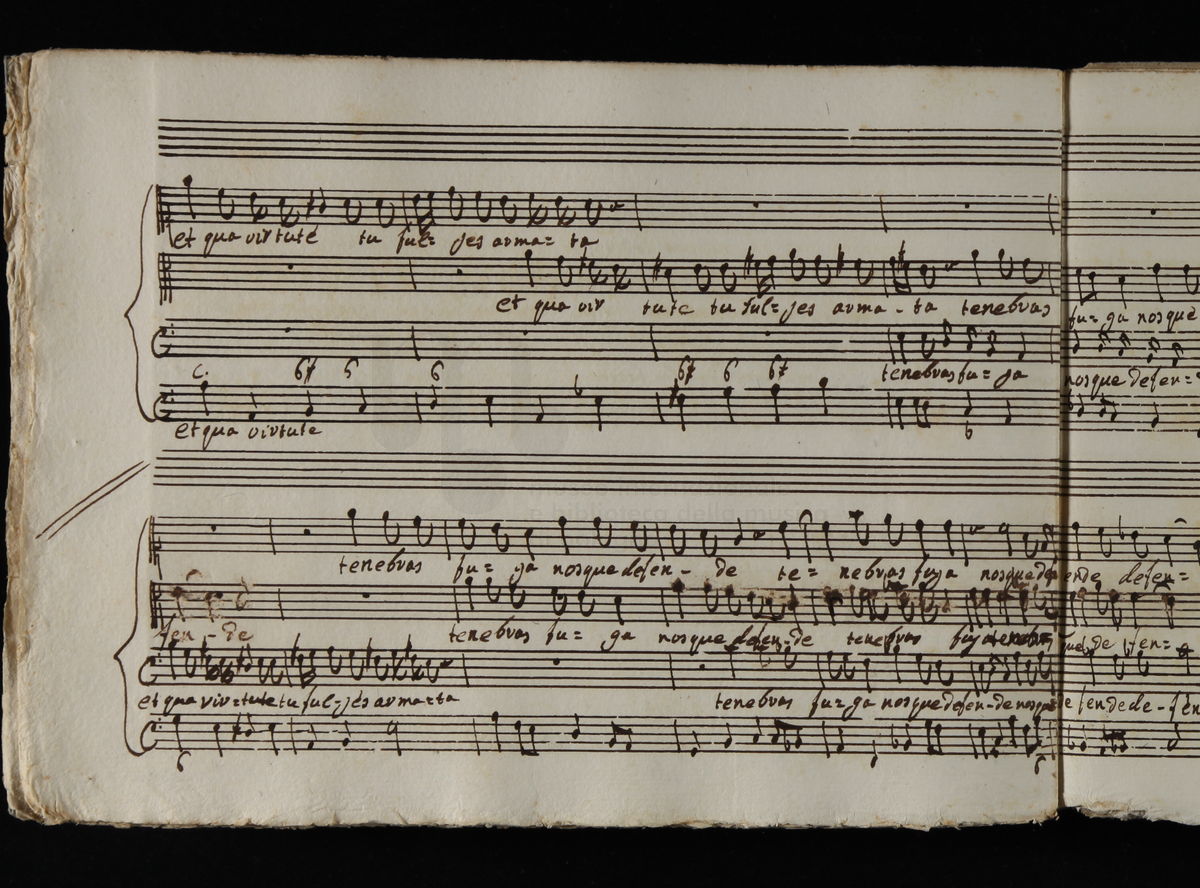 et qua virtute tu ful= jes arma= ta
et qua vir tute tu ful= jes arma - ta tenebras fu= ga nosque
tenebras fu= ga nosque defen=
c. 6# 6 6 b 6# 6 6#
et qua virtute
b
tenebras fu= ga nosque defen - de te= nebras fuga nosque defende defen=
fen - de tenebras fu= ga nosque defen=de tenebras
et qua vir=tute tu ful=jes arma=ta tenebras fu=ga nosque defen=de nosque defende de - fen
6 6